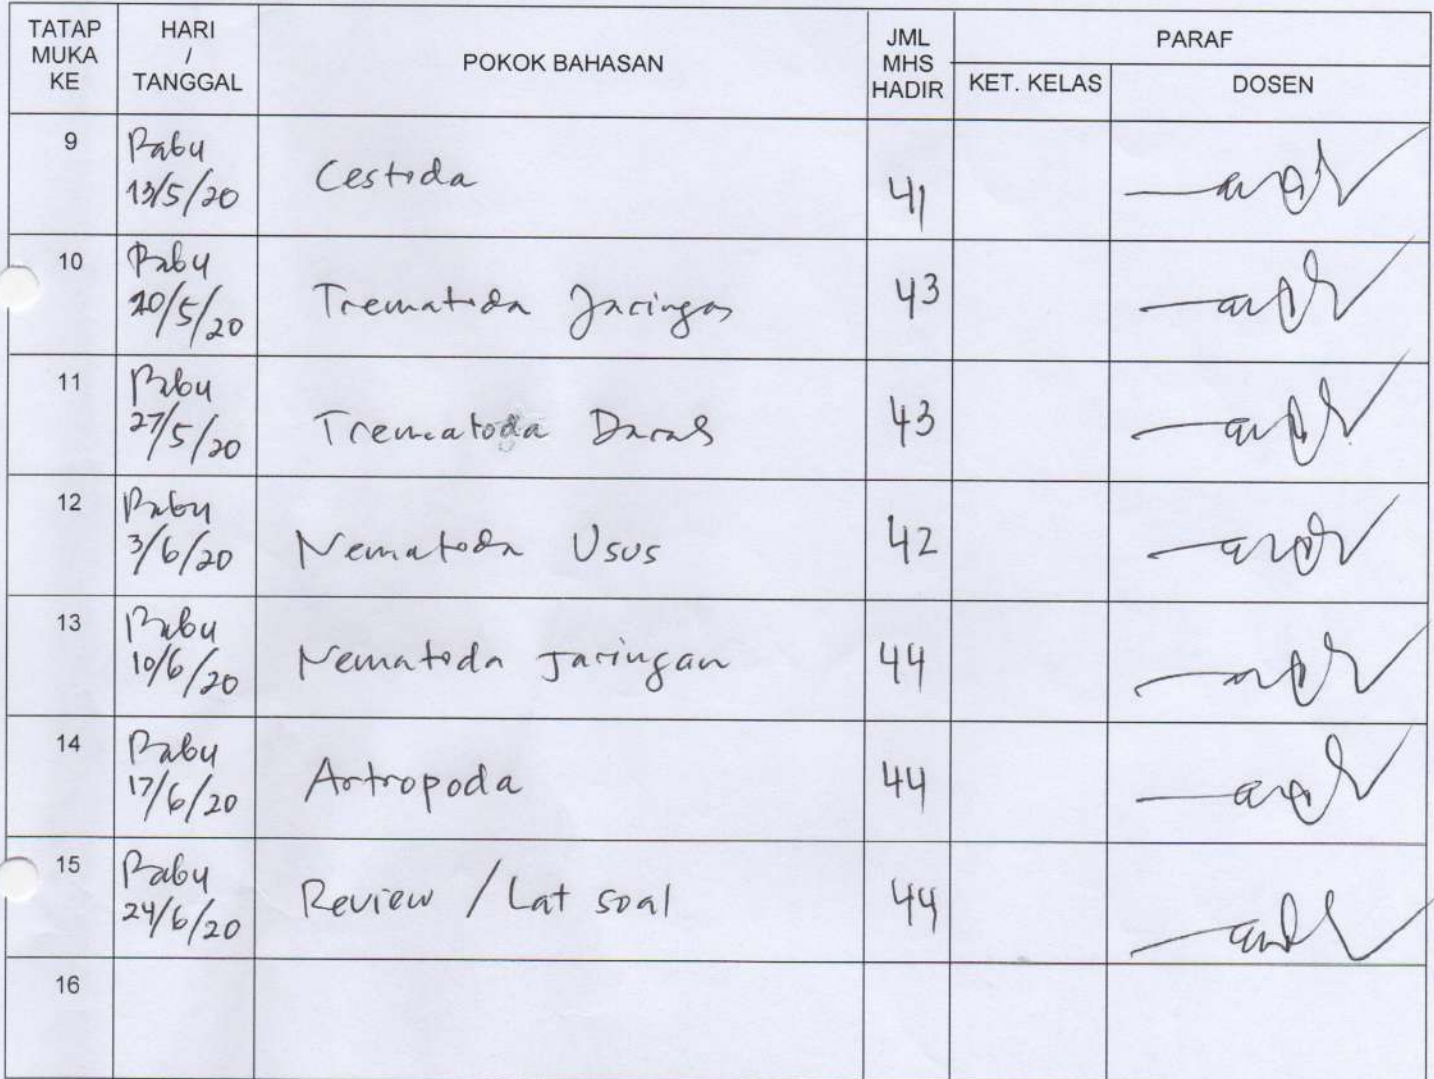 TATAP MUKA KE
HARI / TANGGAL
POKOK BAHASAN
JML MHS HADIR
PARAF
KET. KELAS
DOSEN
9
Rabu
13/5/20
Cestoda
41
10
Rabu
20/5/20
Trematoda Jaringan
43
11
Rabu
27/5/20
Trematoda Darah
43
12
Rabu
3/6/20
Nematoda Usus
42
13
Rabu
10/6/20
Nematoda Jaringan
44
14
Rabu
17/6/20
Artropoda
44
15
Rabu
24/6/20
Review / Lat soal
44
16